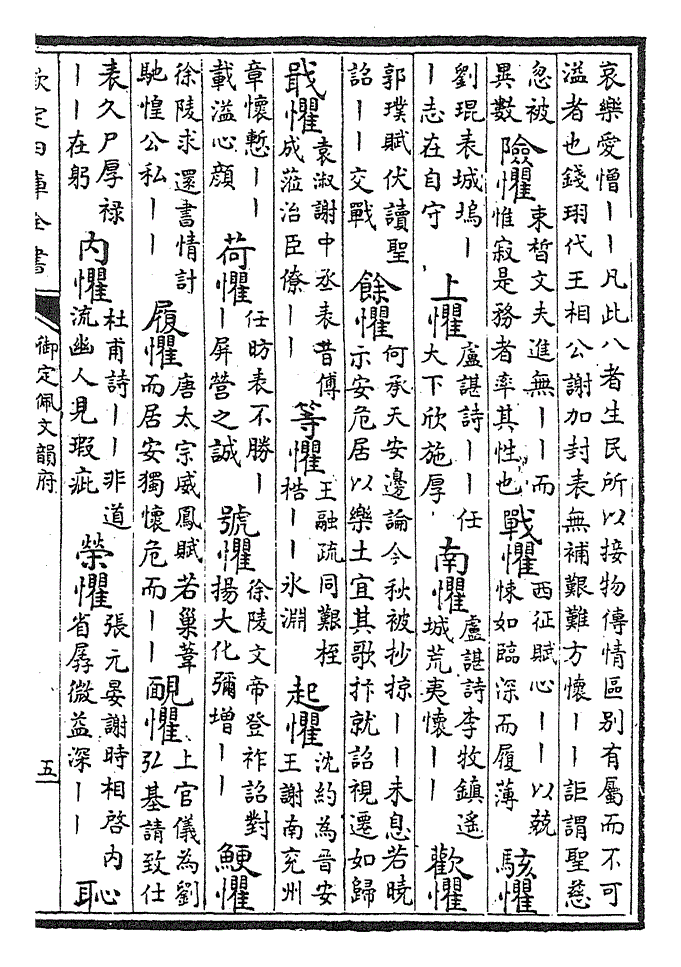 哀樂愛憎丨丨凡此八者生民所以接物傳情區别有屬而不可
溢者也錢珝代王相公謝加封表無補艱難方懷丨丨詎謂聖慈
忽被異數 險懼 束晳文夫進無丨丨而惟寂是務者率其性也 戰懼 西征賦心丨丨以兢悚如臨深而履薄 駭懼
劉琨表城塢丨丨志在自守 上懼 盧諶詩丨丨任大下欣施厚 南懼 盧諶詩李牧鎮邊城荒夷懷丨丨 歡懼
郭璞賦伏讀聖詔丨丨交戰 餘懼 何承天安邊論今秋被抄掠丨丨未息若曉示安危居以樂土宜其歌抃就詔視遷如歸
戢懼 袁淑謝中丞表昔傅成蒞治臣僚丨丨 等懼 王融疏同艱桎梏丨丨氷淵 起懼 沈約為晉安王謝南兖州
章懷慙丨丨載溢心顔 荷懼 任昉表不勝丨丨屏營之誠 號懼 徐陵文帝登祚詔對揚大化彌增丨丨 鯁懼
徐陵求還書情計馳惶公私丨丨 履懼 唐太宗威鳳賦若巢葦而居安獨懷危而丨丨 靦懼 上官儀為劉弘基請致仕
表久尸厚禄丨丨在躬 内懼 杜甫詩丨丨非道流幽人見瑕疵 榮懼 張元晏謝時相啓内省孱微益深丨丨 恥
欽定四庫全書
御定佩文韻府
五